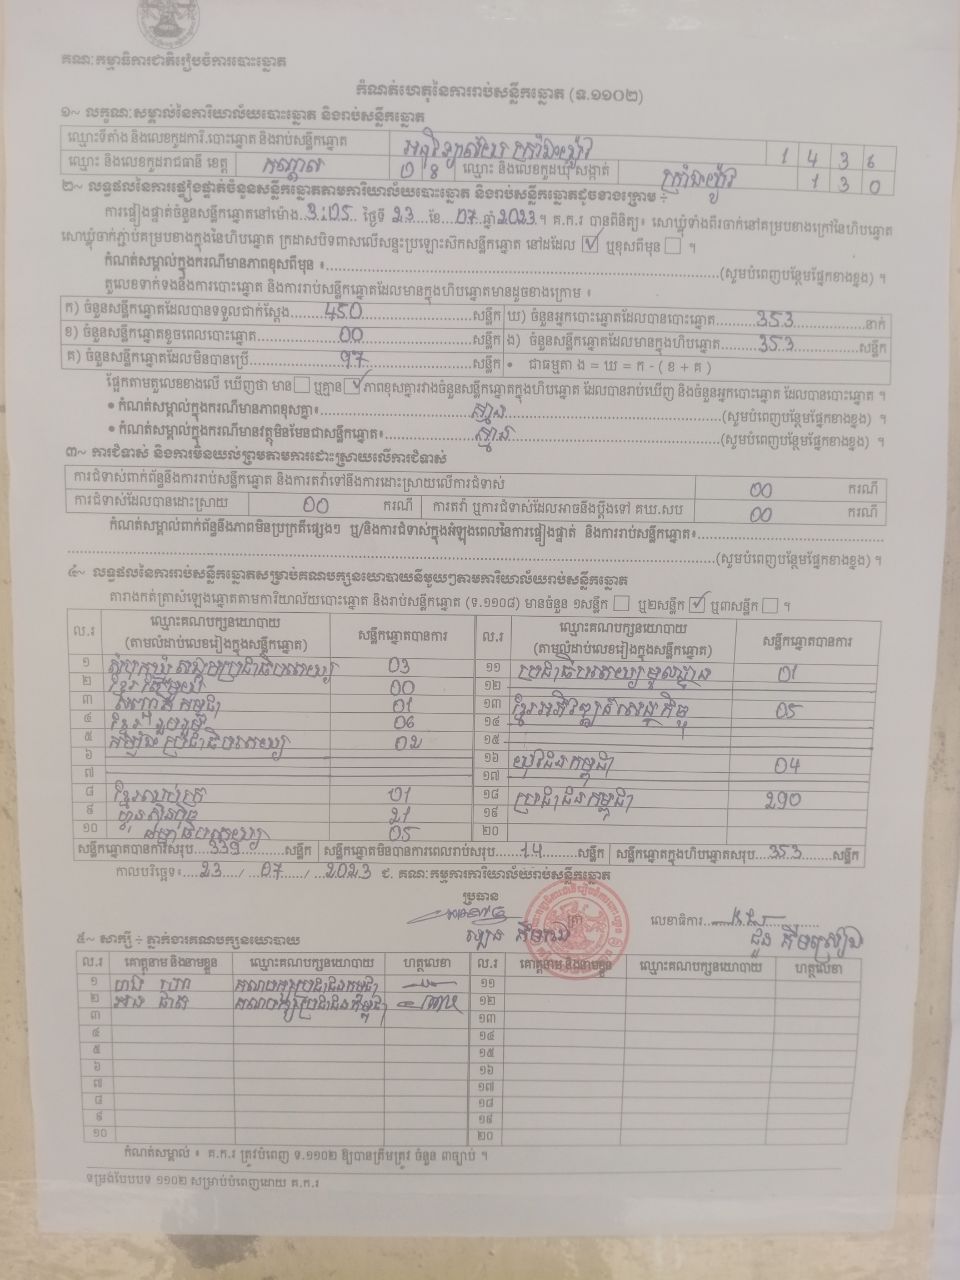 គណៈកម្មាធិការជាតិរៀបចំការបោះឆ្នោត
កំណត់ហេតុនៃការរាប់សន្លឹកឆ្នោត (ទ.១១០២)
១~ លក្ខណៈសម្គាល់នៃការិយាល័យបោះឆ្នោត និងរាប់សន្លឹកឆ្នោត
ឈ្មោះទីតាំង និងលេខកូដការិ.បោះឆ្នោត និងរាប់សន្លឹកឆ្នោត អនុវិទ្យាល័យ ក្រាំងយ៉ូវ 1 4 3 6
ឈ្មោះ និងលេខកូដរាជធានី ខេត្ត កណ្តាល 0 8 ឈ្មោះ និងលេខកូដឃុំ សង្កាត់ ក្រាំងយ៉ូវ 1 3 0
២~ លទ្ធផលនៃការផ្ទៀងផ្ទាត់ចំនួនសន្លឹកឆ្នោតតាមការិយាល័យបោះឆ្នោត និងរាប់សន្លឹកឆ្នោតដូចខាងក្រោម ÷
ការផ្ទៀងផ្ទាត់ចំនួនសន្លឹកឆ្នោតនៅម៉ោង..3:05.. ថ្ងៃទី 23..ខែ..07..ឆ្នាំ 2023.។ គ.ក.រ បានពិនិត្យ៖ សោឃ្លុំទាំងពីរចាក់នៅគម្របខាងក្រៅនៃហិបឆ្នោត
សោឃ្លុំចាក់ភ្ជាប់គម្របខាងក្នុងនៃហិបឆ្នោត ក្រដាសបិទពាសលើសន្ទះប្រឡោះស៊កសន្លឹកឆ្នោត នៅដដែល ☑ ឬខុសពីមុន ☐ ។
កំណត់សម្គាល់ក្នុងករណីមានភាពខុសពីមុន ៖......(សូមបំពេញបន្ថែមផ្នែកខាងខ្នង) ។
តួលេខទាក់ទងនឹងការបោះឆ្នោត និងការរាប់សន្លឹកឆ្នោតដែលមានក្នុងហិបឆ្នោតមានដូចខាងក្រោម ៖
ក) ចំនួនសន្លឹកឆ្នោតដែលបានទទួលជាក់ស្តែង......450......សន្លឹក ឃ) ចំនួនអ្នកបោះឆ្នោតដែលបានបោះឆ្នោត......353......នាក់
ខ) ចំនួនសន្លឹកឆ្នោតខូចពេលបោះឆ្នោត......00......សន្លឹក ង) ចំនួនសន្លឹកឆ្នោតដែលមានក្នុងហិបឆ្នោត......353......សន្លឹក
គ) ចំនួនសន្លឹកឆ្នោតដែលមិនបានប្រើ......97......សន្លឹក • ជាធម្មតា ង = ឃ = ក - ( ខ + គ )
ផ្អែកតាមតួលេខខាងលើ ឃើញថា មាន ☐ ឬគ្មាន ☑ ភាពខុសគ្នារវាងចំនួនសន្លឹកឆ្នោតក្នុងហិបឆ្នោត ដែលបានរាប់ឃើញ និងចំនួនអ្នកបោះឆ្នោត ដែលបានបោះឆ្នោត ។
• កំណត់សម្គាល់ក្នុងករណីមានភាពខុសគ្នា៖......គ្មាន......(សូមបំពេញបន្ថែមផ្នែកខាងខ្នង) ។
• កំណត់សម្គាល់ក្នុងករណីមានវត្ថុមិនមែនជាសន្លឹកឆ្នោត៖......គ្មាន......(សូមបំពេញបន្ថែមផ្នែកខាងខ្នង) ។
៣~ ការជំទាស់ និងការមិនយល់ព្រមតាមការដោះស្រាយលើការជំទាស់
ការជំទាស់ពាក់ព័ន្ធនឹងការរាប់សន្លឹកឆ្នោត និងការតវ៉ាទៅនឹងការដោះស្រាយលើការជំទាស់ 00 ករណី
ការជំទាស់ដែលបានដោះស្រាយ 00 ករណី ការតវ៉ា ឬការជំទាស់ដែលអាចនឹងប្តឹងទៅ គឃ.សប 00 ករណី
កំណត់សម្គាល់ពាក់ព័ន្ធនឹងភាពមិនប្រក្រតីផ្សេងៗ ឬ/និងការជំទាស់ក្នុងអំឡុងពេលនៃការផ្ទៀងផ្ទាត់ និងការរាប់សន្លឹកឆ្នោត៖......
......(សូមបំពេញបន្ថែមផ្នែកខាងខ្នង) ។
៤~ លទ្ធផលនៃការរាប់សន្លឹកឆ្នោតសម្រាប់គណបក្សនយោបាយនីមួយៗតាមការិយាល័យរាប់សន្លឹកឆ្នោត
តារាងកត់ត្រាសំឡេងឆ្នោតតាមការិយាល័យបោះឆ្នោត និងរាប់សន្លឹកឆ្នោត (ទ.១១០៨) មានចំនួន ១សន្លឹក ☐ ឬ២សន្លឹក ☑ ឬ៣សន្លឹក ☐ ។
ល.រ ឈ្មោះគណបក្សនយោបាយ (តាមលំដាប់លេខរៀងក្នុងសន្លឹកឆ្នោត) សន្លឹកឆ្នោតបានការ ល.រ ឈ្មោះគណបក្សនយោបាយ (តាមលំដាប់លេខរៀងក្នុងសន្លឹកឆ្នោត) សន្លឹកឆ្នោតបានការ
១ សំបុកឃ្មុំសង្គមប្រជាធិបតេយ្យ 03 ១១ ប្រជាធិបតេយ្យមូលដ្ឋាន 01
២ ខ្មែរតែមួយ 00 ១២
៣ សញ្ជាតិកម្ពុជា 01 ១៣ ខ្មែរអភិវឌ្ឍន៍សេដ្ឋកិច្ច 05
៤ ខ្មែររួបរួមជាតិ 06 ១៤
៥ កម្លាំងប្រជាធិបតេយ្យ 02 ១៥
៦ ១៦ យុវជនកម្ពុជា 04
៧ ១៧
៨ ខ្មែរឈប់ក្រ 01 ១៨ ប្រជាជនកម្ពុជា 290
៩ ហ្វ៊ុនស៊ិនប៉ិច 21 ១៩
១០ ធម្មាធិបតេយ្យ 05 ២០
សន្លឹកឆ្នោតបានការសរុប....339......សន្លឹក សន្លឹកឆ្នោតមិនបានការពេលរាប់សរុប......14......សន្លឹក សន្លឹកឆ្នោតក្នុងហិបឆ្នោតសរុប....353......សន្លឹក
កាលបរិច្ឆេទ៖....23..../....07....../...2023 ជ. គណៈកម្មការការិយាល័យរាប់សន្លឹកឆ្នោត
ប្រធាន
ត្រា លេខាធិការ
៥~ សាក្សី ÷ ភ្នាក់ងារគណបក្សនយោបាយ
ល.រ គោត្តនាម និងនាមខ្លួន ឈ្មោះគណបក្សនយោបាយ ហត្ថលេខា ល.រ គោត្តនាម និងនាមខ្លួន ឈ្មោះគណបក្សនយោបាយ ហត្ថលេខា
១ គណបក្សប្រជាជនកម្ពុជា ១១
២ គណបក្សប្រជាជនកម្ពុជា ១២
៣ ១៣
៤ ១៤
៥ ១៥
៦ ១៦
៧ ១៧
៨ ១៨
៩ ១៩
១០ ២០
កំណត់សម្គាល់ ៖ គ.ក.រ ត្រូវបំពេញ ទ.១១០២ ឱ្យបានត្រឹមត្រូវ ចំនួន ៣ច្បាប់ ។
ទម្រង់បែបបទ ១១០២ សម្រាប់បំពេញដោយ គ.ក.រ